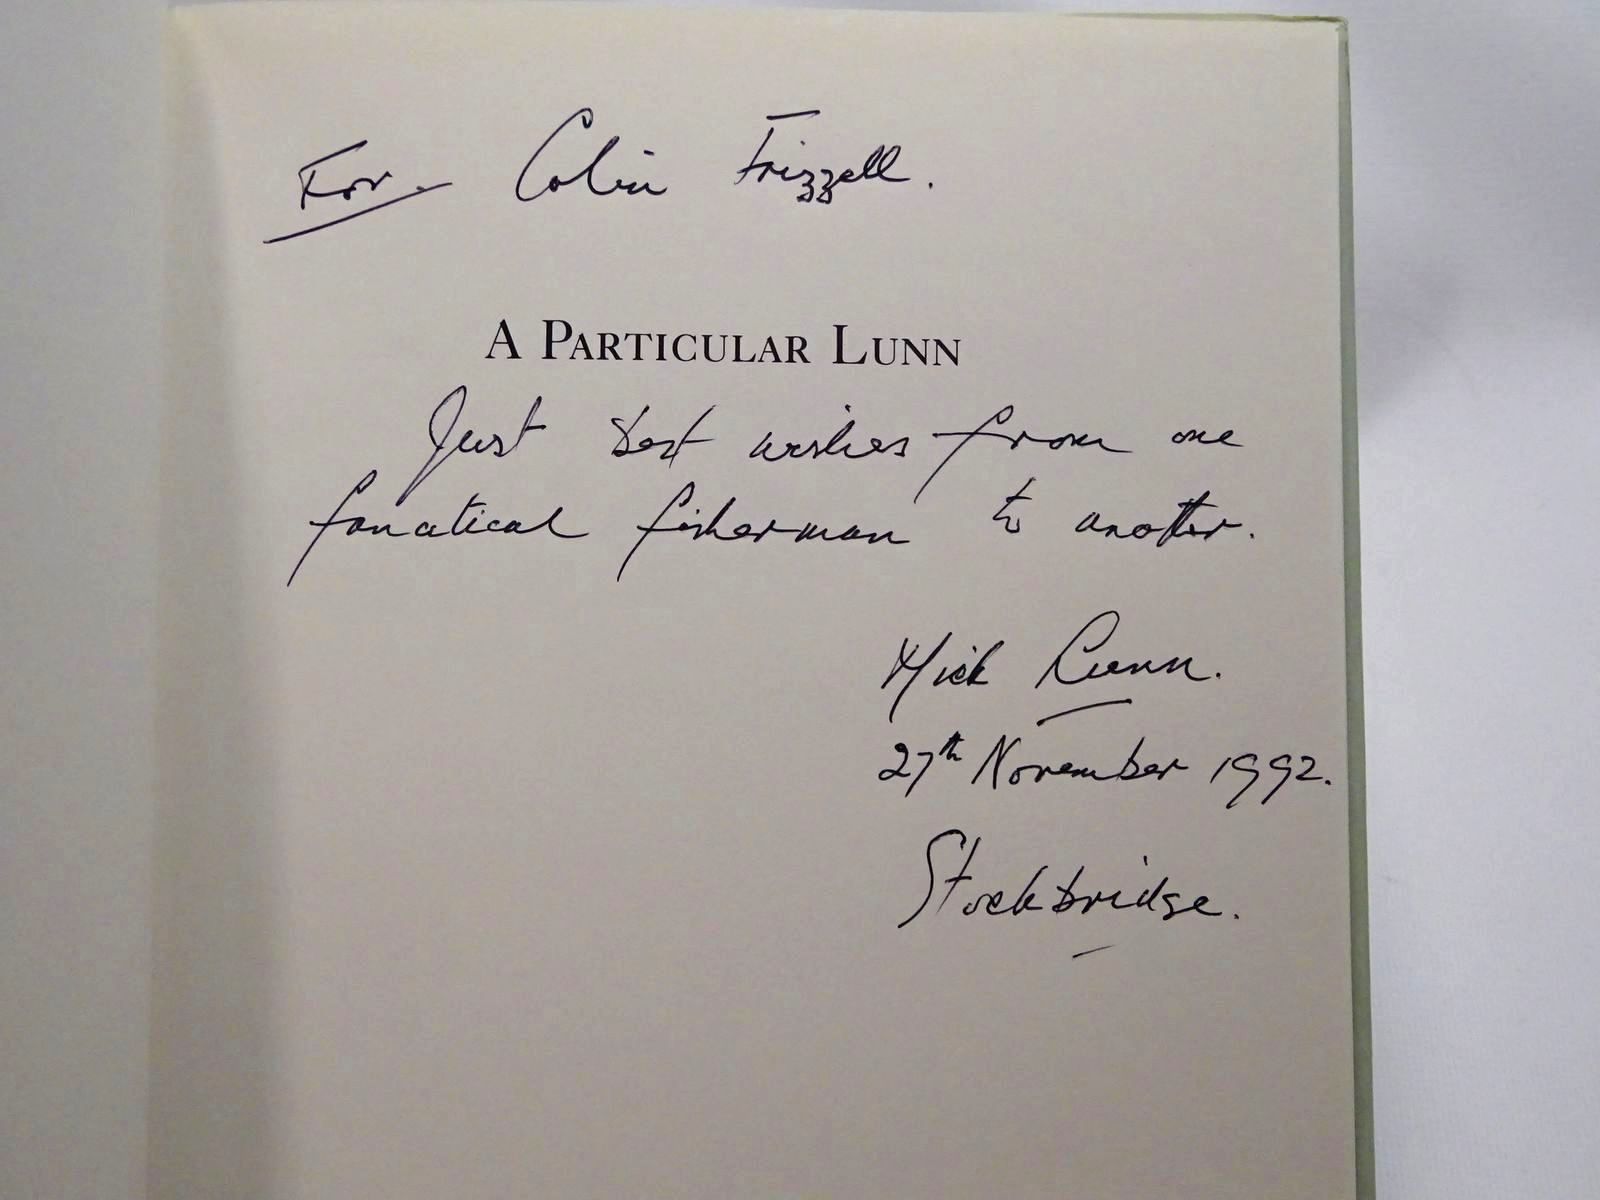 For. Colin Frizzell.
A PARTICULAR LUNN
Just best wishes from one
fanatical fisherman to another.
Mick Lunn.
27th November 1992.
Stockbridge.